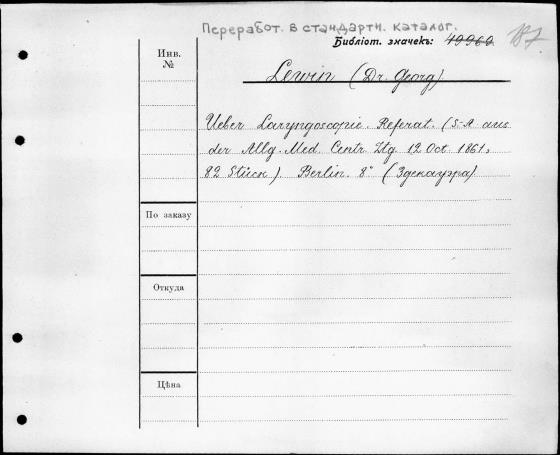 Переработ. в стандартн. каталог.
Библіот. значекъ: 49960 187
Инв. №
Lewin (Dr. Georg)
Ueber Laryngoscopie. Referat. (S-A aus
der Allg. Med. Centr. Ztg 12 Oct. 1861,
82 Stück). Berlin. 8° (Здекауэра)
По заказу
Откуда
Цѣна